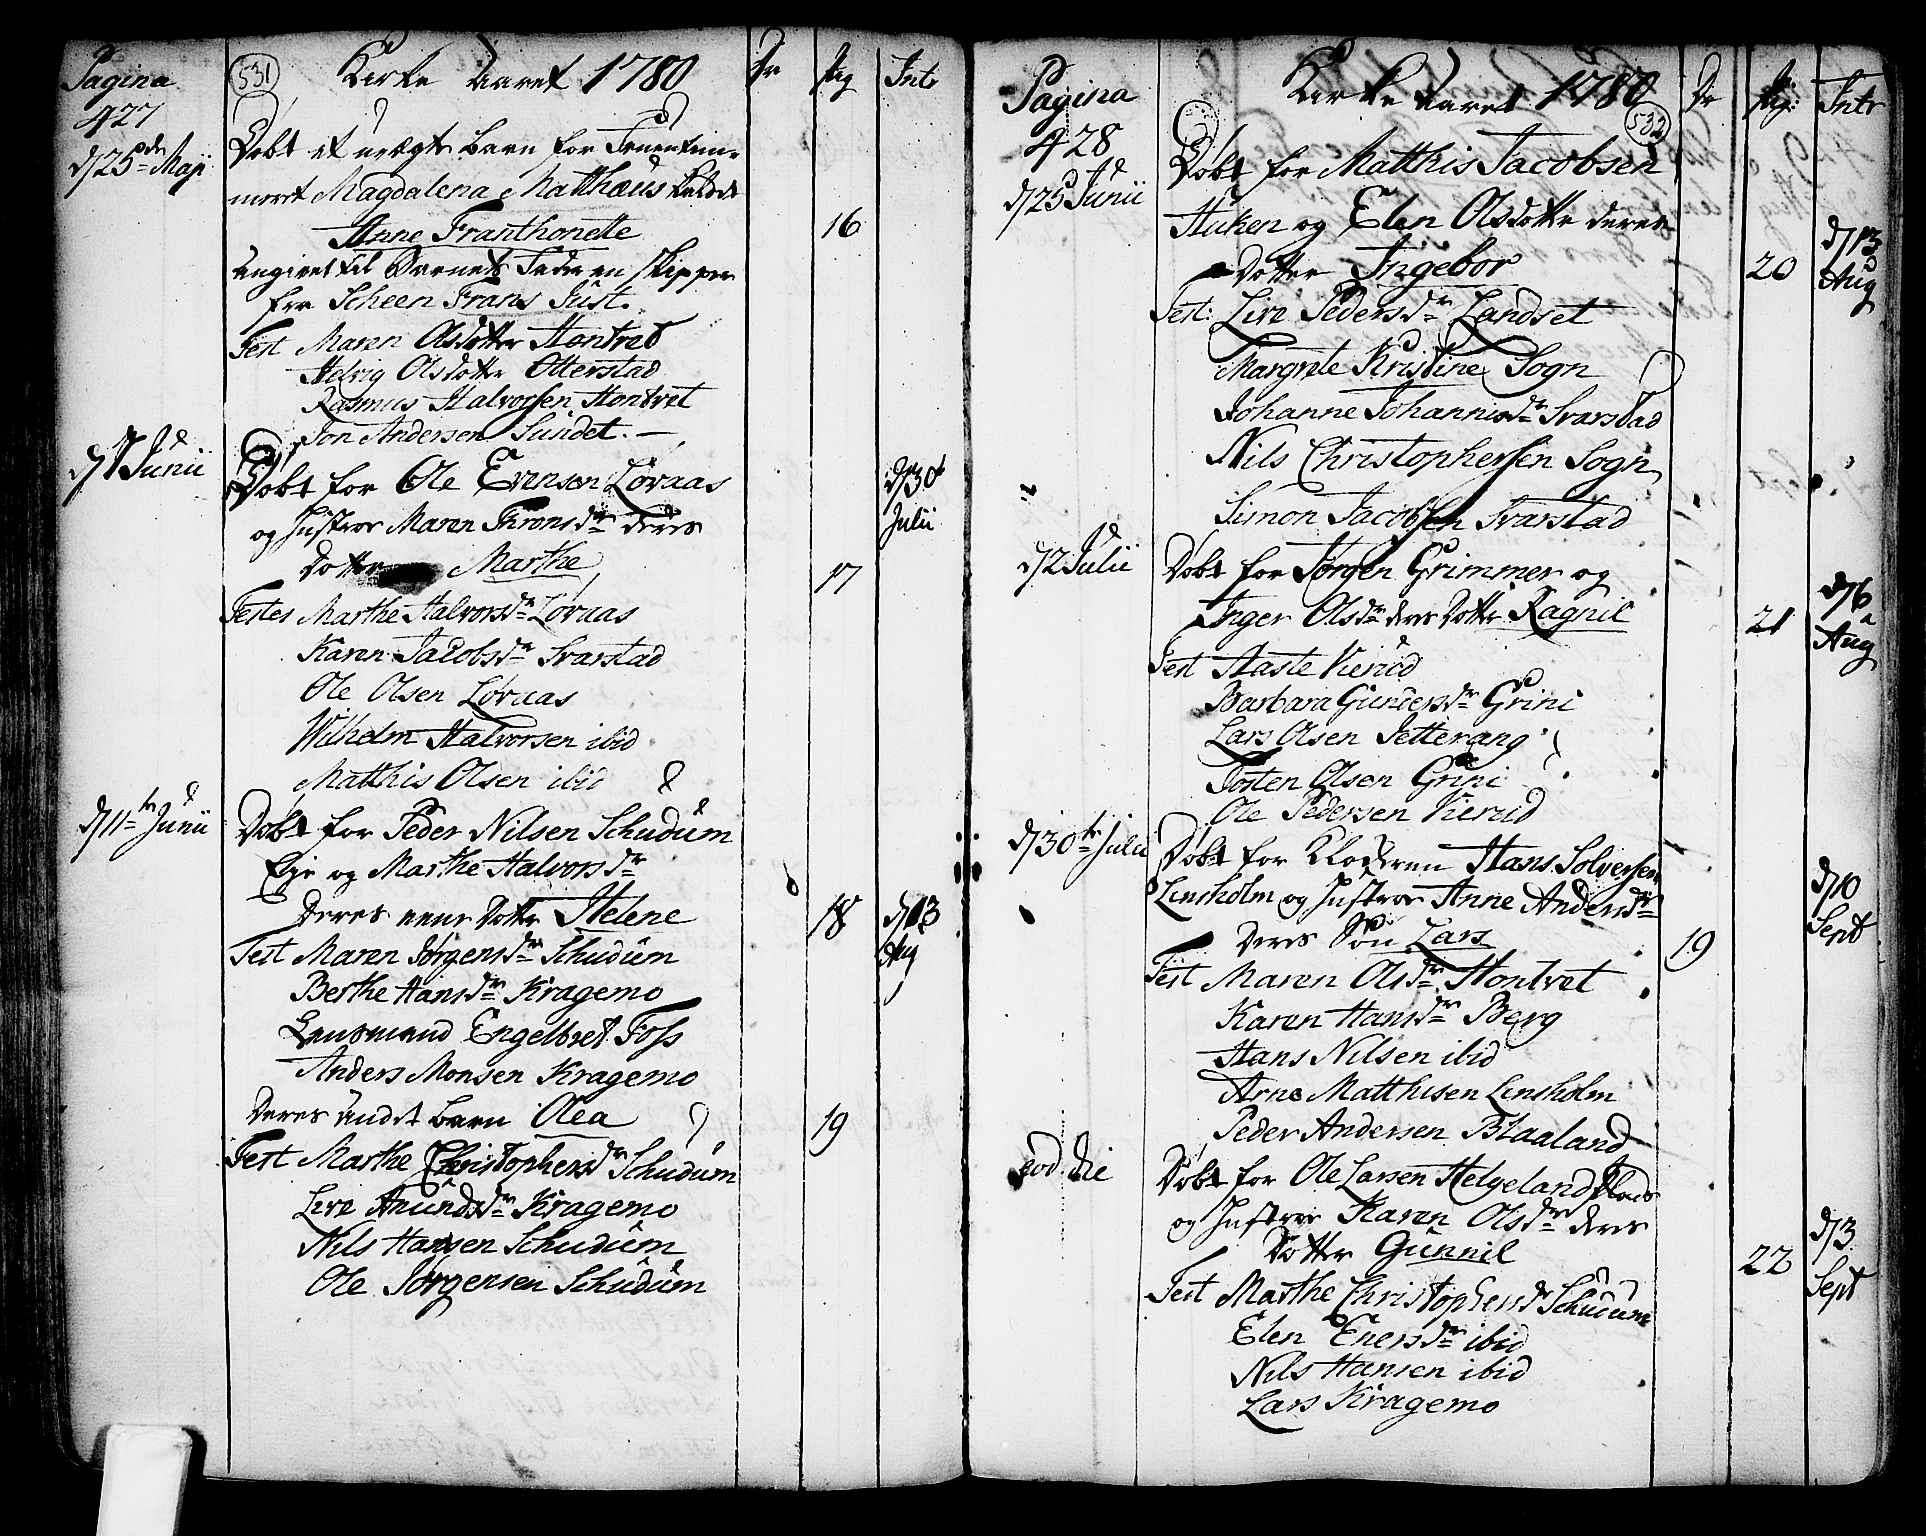 Pagina
427
531
Kirke Aaret 1780
Dr
Pig
Intr
d/25de Maji
Døbt et uægte barn for Fruentim-
meret Magdalena Matthæus kaldet
Anne Franthonette
16
angivet til Barnets Fader en Skipper
fra Scheen Frans Just.
Test Maren Olsdotter Hontvet
Helvig Olsdotter Otterstad
Rasmus Halvorsen Hontvet
Jon Andersen Sundet.
d/1 Junii
Døbt for Ole Evensen Løvaas
og Hustroe Maren Thronsdr deres
d/30
Julii
Dotter Marthe
17
Testes Marthe Halvorsdr Løvaas
Karen Jacobsdr Svarstad
Ole Olsen Løvaas
Wilhelm Halvorsen ibid
Matthis Olsen ibid
d/11te Junii
Døbt for Peder Nilsen Schudüm
Eje og Marthe Halvorsdr
Deres eene Dotter Helene
18
d/13
Aug
Test Maren Jørgensdr Schudüm
Berthe Hansdr Kragemo
Lensmand Engelbret Foss
Anders Monsen Kragemo
Deres andet barn Olea
19
Test Marthe Christophersdr Schudüm
Live Anundsdr Kragemo
Nils Hansen Schudüm
Ole Jørgensen Schudüm
Pagina
428
Kirke Aaret 1780
532
Dr
Pig:
Intr
d/25 Junii
Døbt for Matthis Jacobsen
Huken og Elen Olsdotter deres
Dotter Ingebor
20
d/13
Aug
Test: Live Pedersdr Landset
Margrete Kristine Sogn
Johanne Johannisdr Svarstad
Nils Christophersen Sogn
Simon Jacobsen Svarstad
d/2 Julii
Døbt for Jørgen Grimmer og
Inger Olsdr deres Dotter Ragnil
21
d/6
Aug
Test Aaste Vierud
Barbara Gundersdr Grini
Lars Olsen Jetterang
Tosten Olsen Grini
Ole Pedersen Vierud
d/30te Julii
Døbt for Klokkeren Hans Solversen
Lensholm og Hustroe Anne Andersdr
Deres Søn Lars
19
d/10
Sept
Test Maren Olsdr Hontvet
Karen Hansdr Berg
Hans Nilsen ibid
Arne Matthisen Lensholm
Peder Andersen Blaaland
eod. die
Døbt for Ole Larsen Helgeland Plads
og Hustroe Karen Olsdr deres
Dotter Gunnil
22
d/3
Sept
Test Marthe Christophersdr Schudum
Elen Enersdr ibid
Nils Hansen ibid
Lars Kragemo